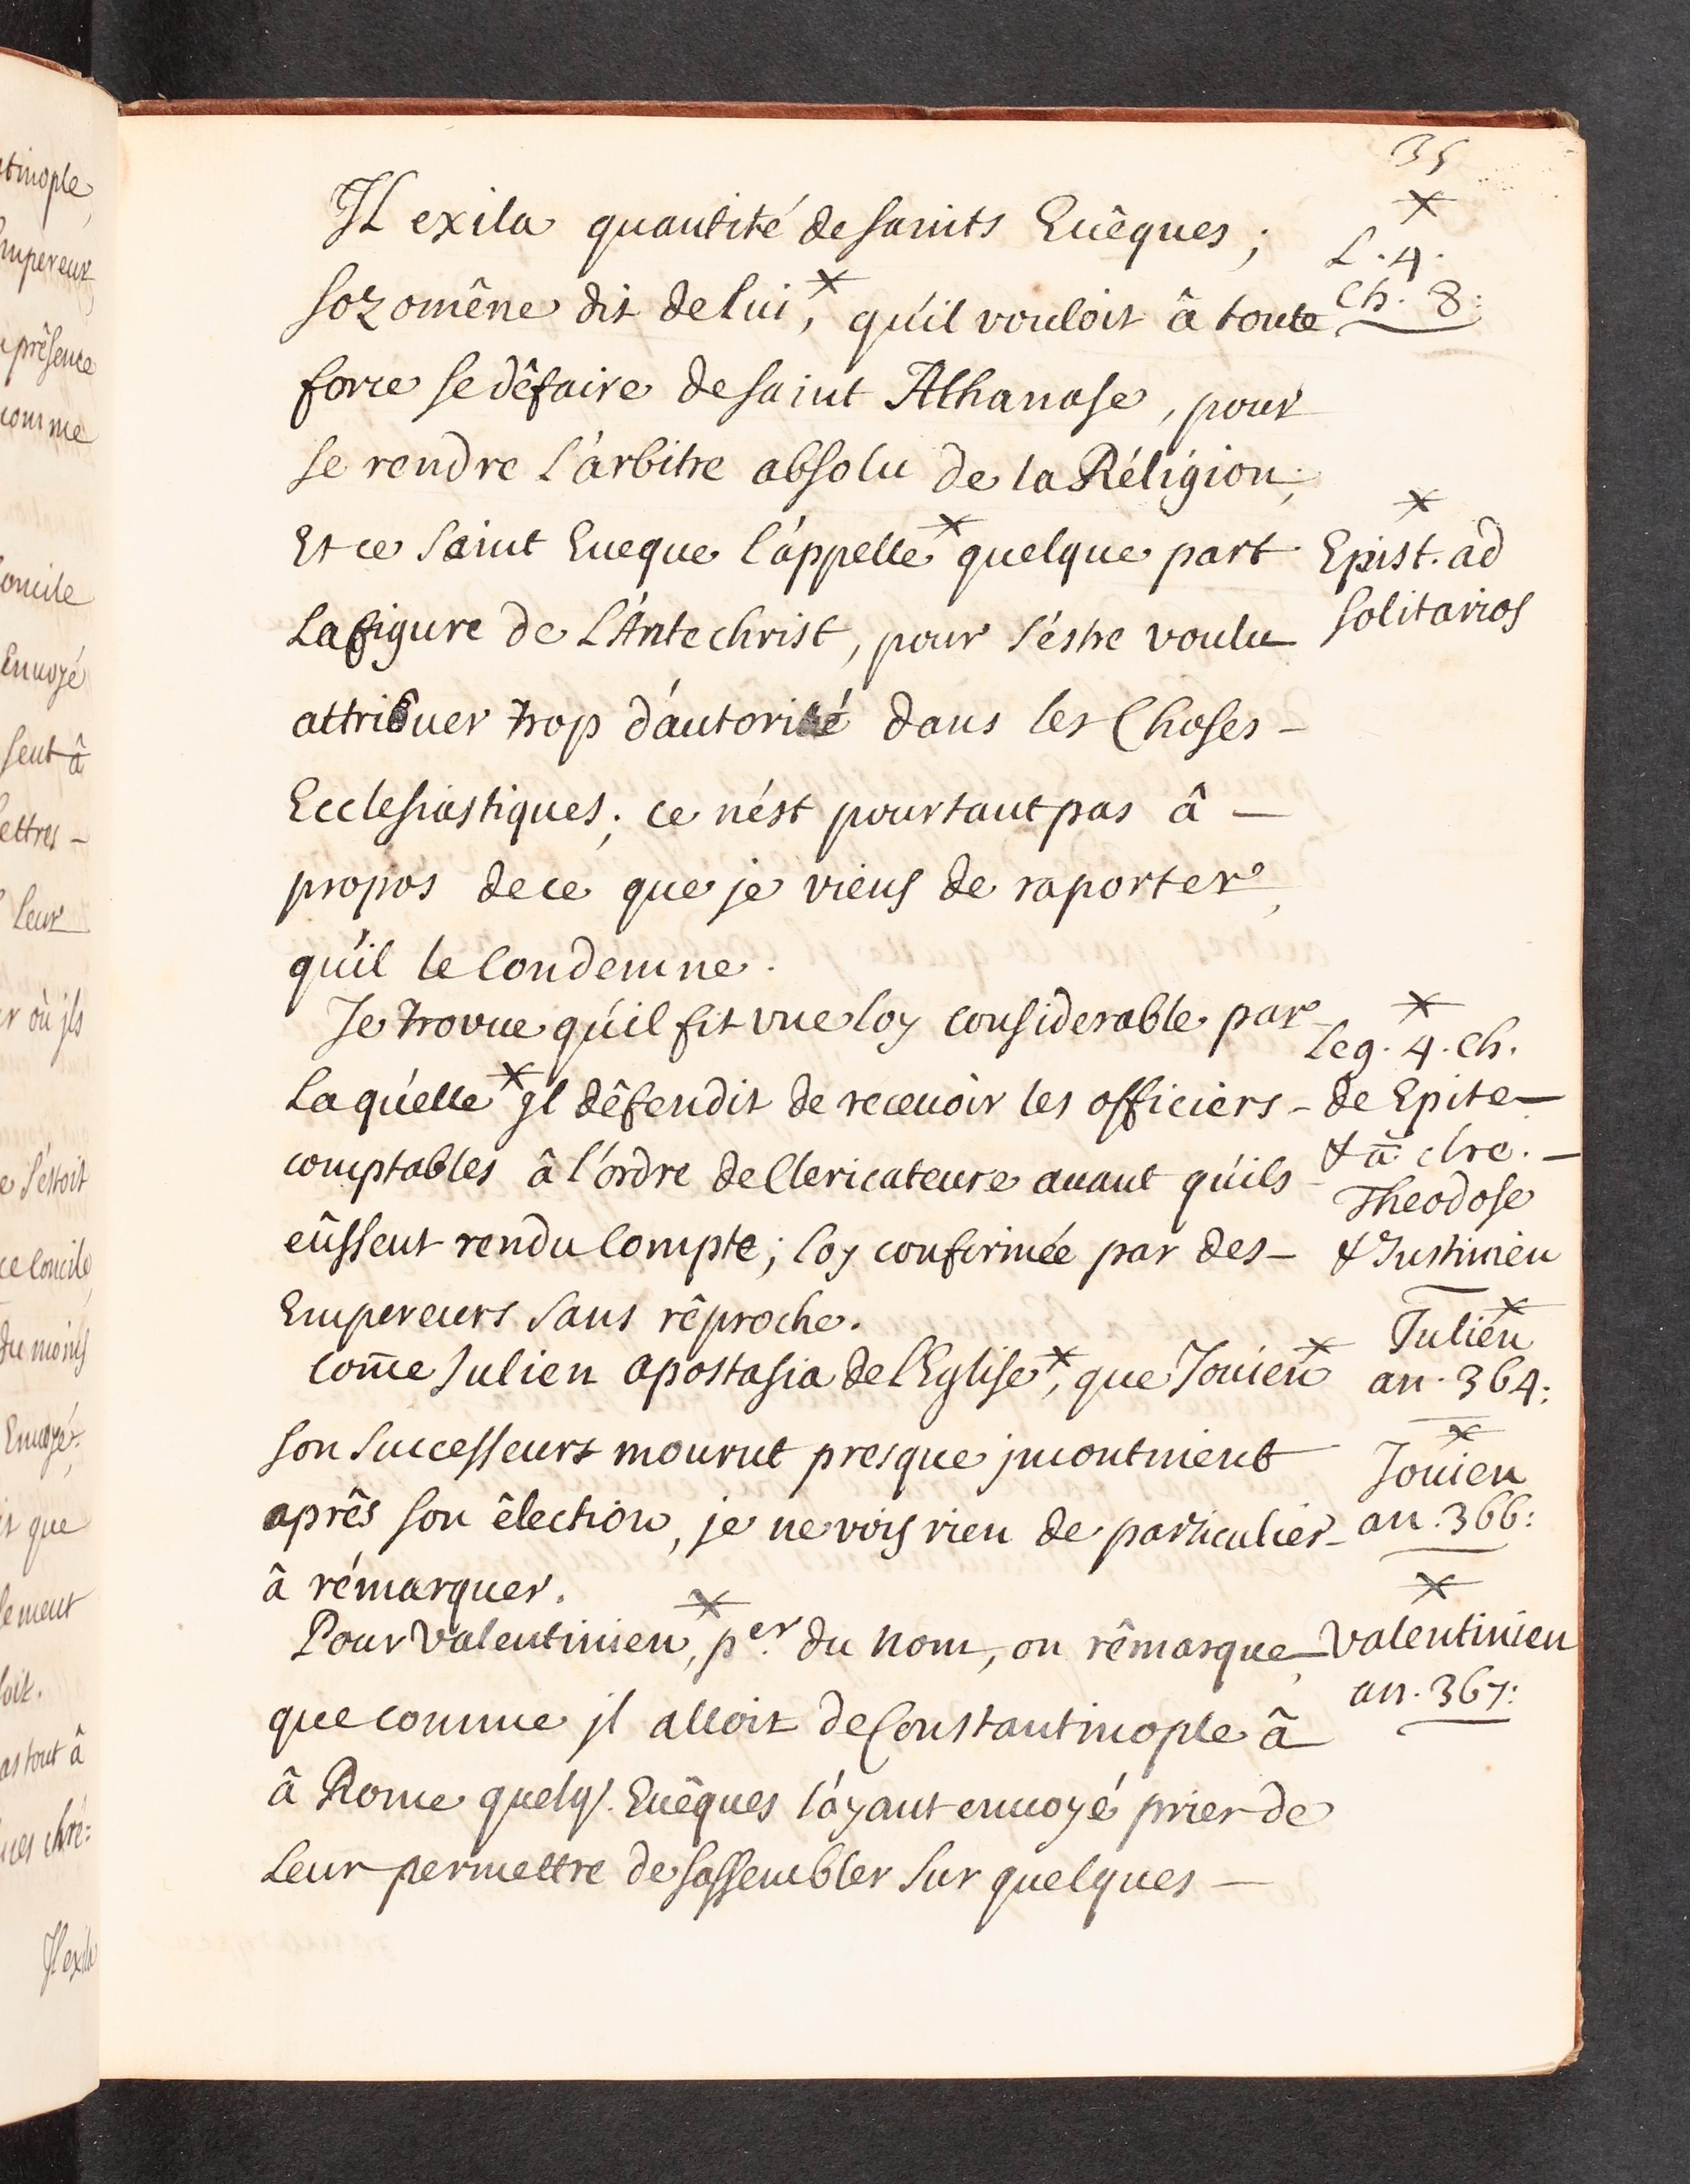 35
Il exila quantité de saints Euêques ;
Sozomêne dit de lui *, qu'il vouloit â toute
force se dêfaire de saint Athanase, pour
se rendre l'arbitre absolu de la Réligion ;
Et ce saint Eueque l'appelle * quelque part
La figure de L'Antechrist, pour s'estre voulu
attribuer trop d'autorité dans les Choses -
Ecclesiastiques ; ce n'ést pourtant pas â -
propos de ce que je viens de raporter,
qu'il le Condemne.
Je trouue qu'il fit vne loy considerable par
Laquelle * jl dêfendit de receuoir les officiers -
comptables â l'ordre de Clericateure auant qu'ils
eûssent rendu Compte ; loy confirmée par des -
Empereurs sans rêproche.
Com̄e Julien apostasia de l'Eglise *, que Jouien *
son Successeurs mourut presque jncontnient
aprês son êlection, je ne vois rien de particulier -
â rémarquer.
Pour Valentinien *, p.er du nom, on rêmarque,
que comme jl alloit de Constantinople â
â Rome quelq/. Euêques l'ayant enuoyé prier de
Leur permettre de s'assembler sur quelques -
*
L. 4.
Ch. 8:
*
Epist. ad
Solitarios
*
Leg. 4. Ch.
de Epite -
Theodose
& Justinien
*
Julien
an. 364:
*
Jouien
an. 366:
*
Valentinien
an. 367:
tinople,
mpereur,
prêsence
comme
oncile
Enuoyé
sent â
ettres -
leur
r où jls
s'éstoit
ce Concile,
du moins
Enuoyé.
que
lement
oit.
as tout â
ues chrê=
Il exila